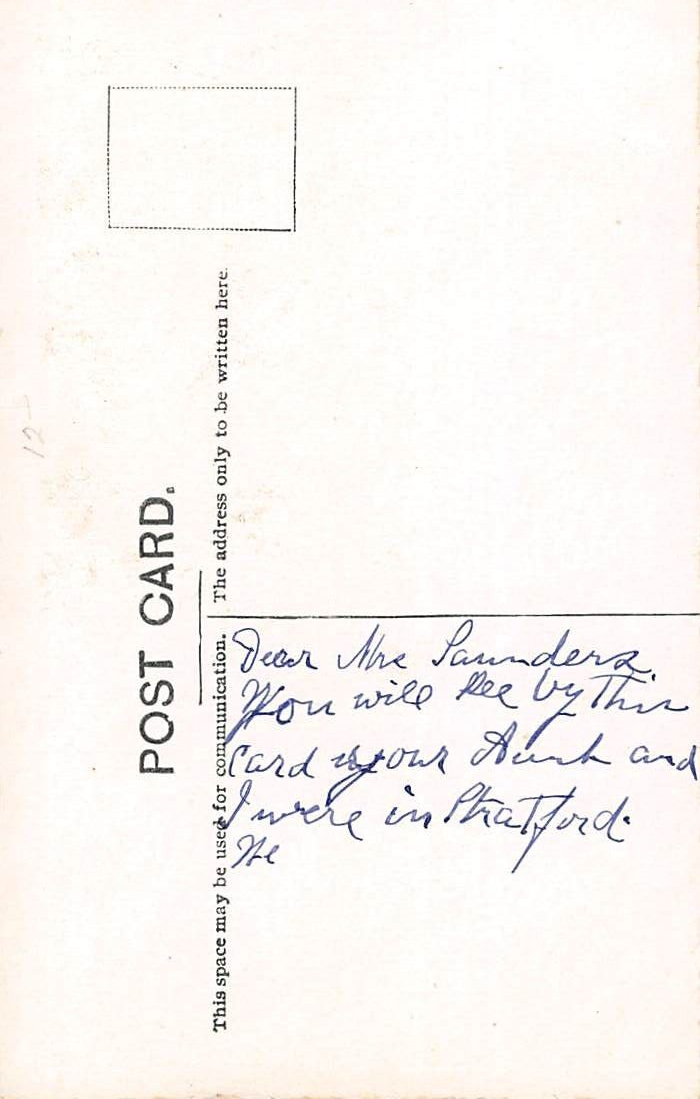 POST CARD.
This space may be used for communication.
The address only to be written here.
Dear Mrs Saunders
You will see by this
card your Aunt and
I were in Stratford.
He
12-